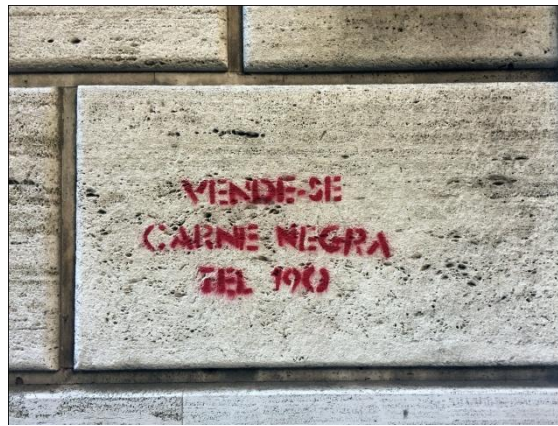 VENDE-SE
CARNE NEGRA
TEL 190